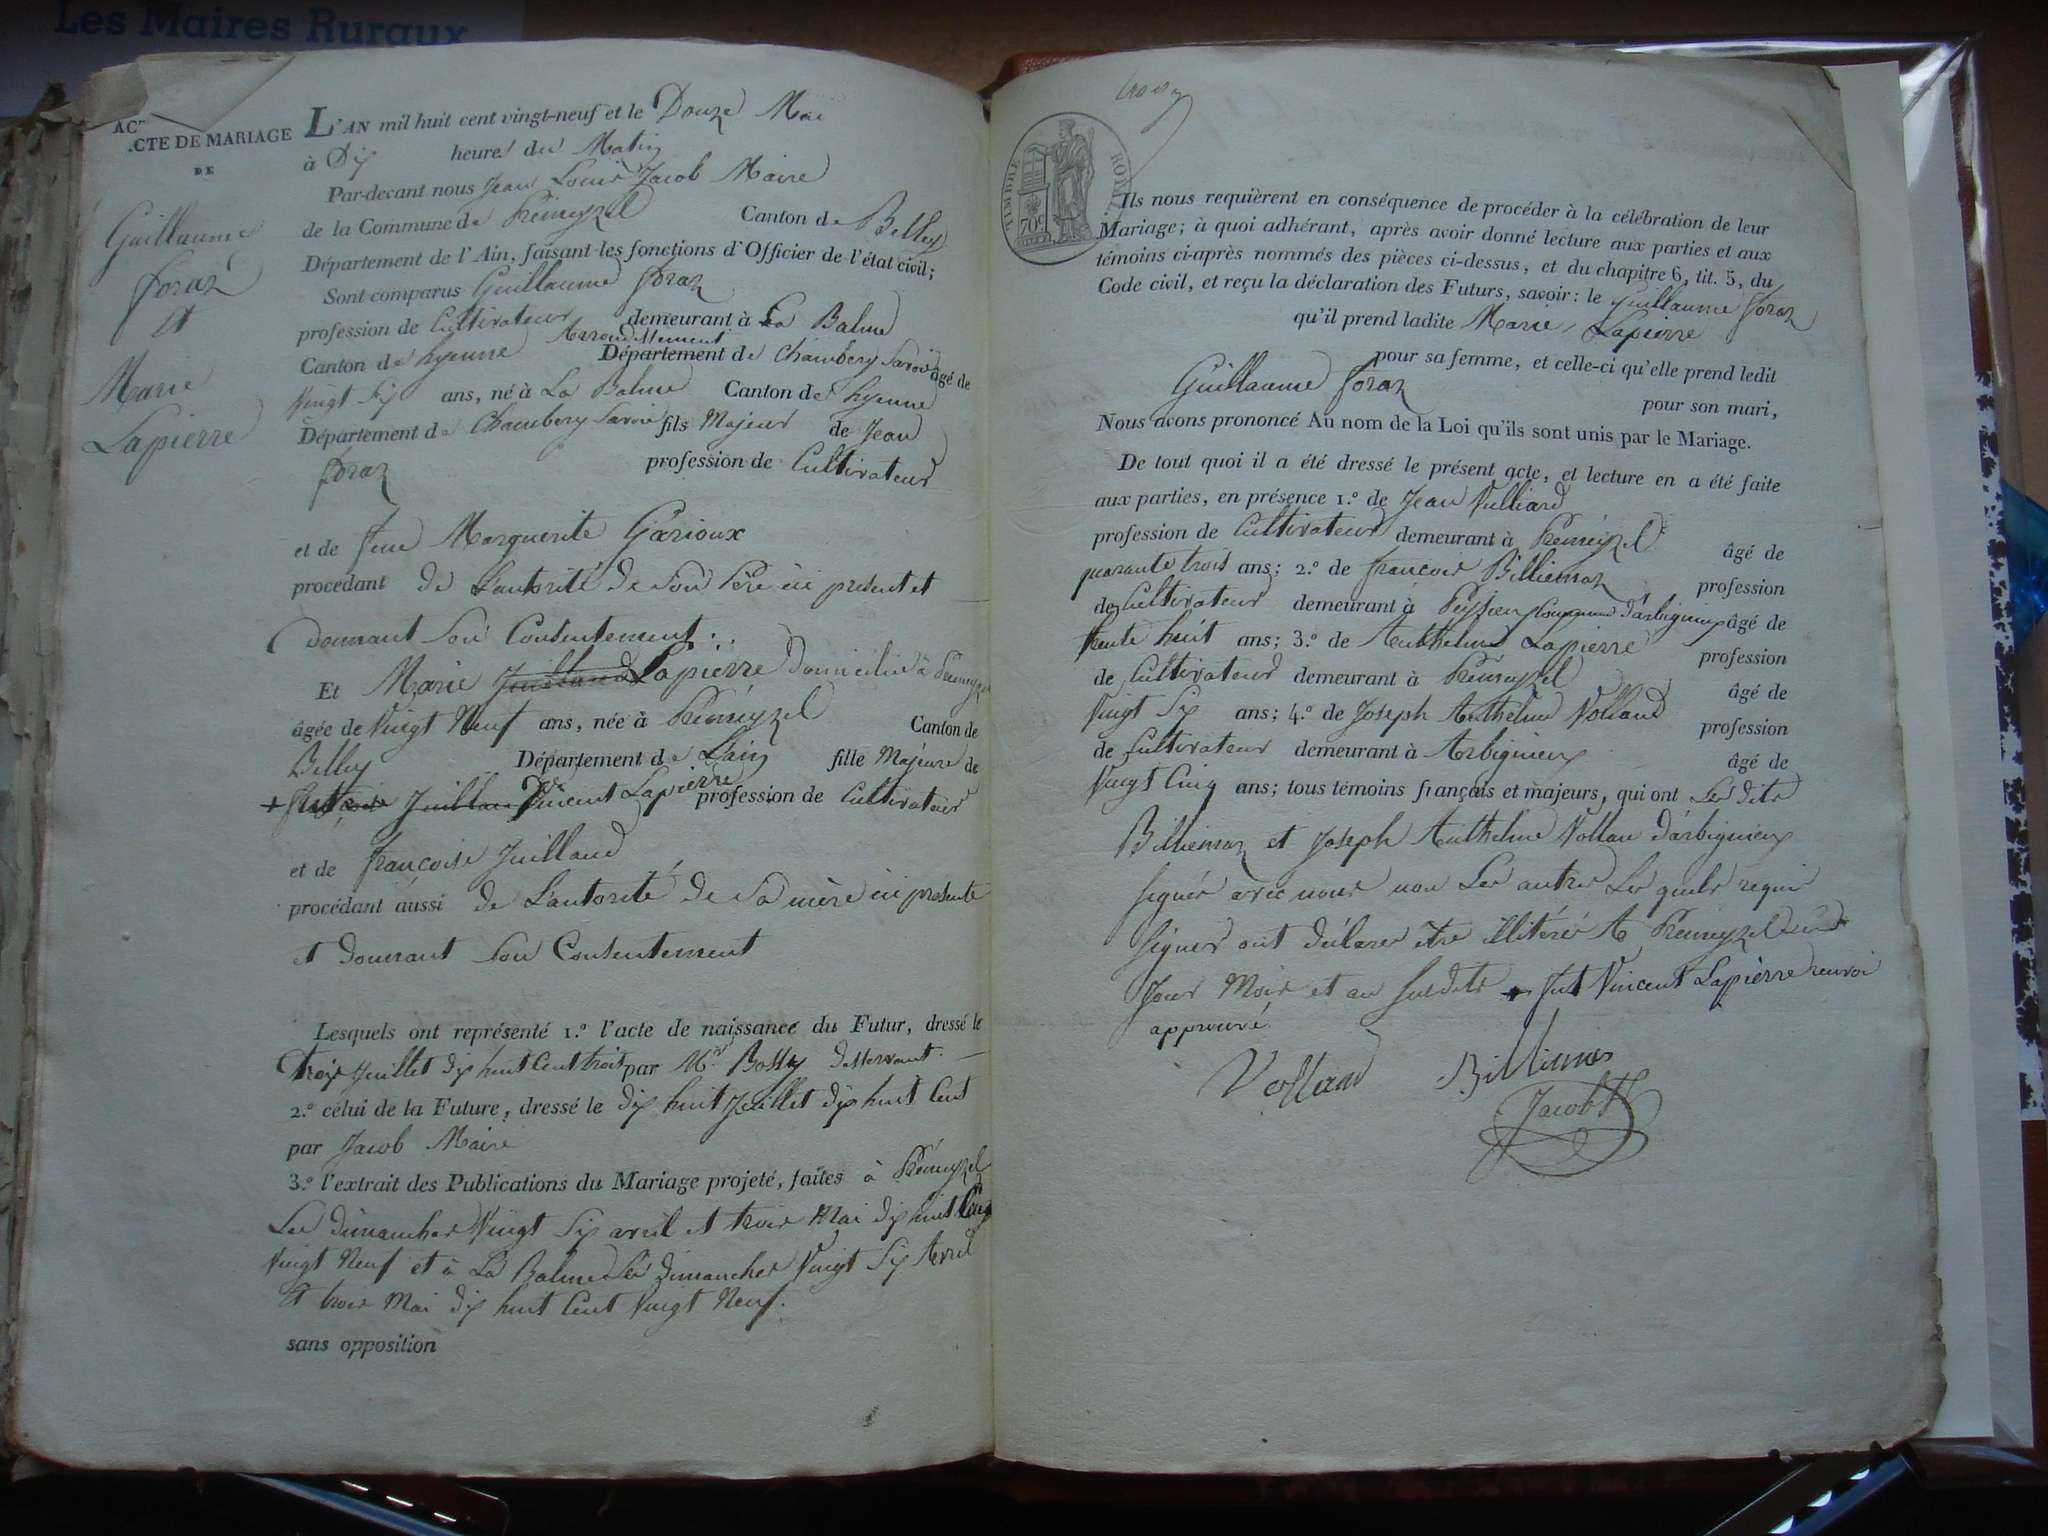 Les Maires Ruraux
ACTE DE MARIAGE
DE
Guillaume
foraz
et
Marie
Lapierre
L'AN mil huit cent vingt-neuf et le Douze Mai
à Dix heures du Matin
Par-devant nous Jean Louis Jacob Maire
de la Commune de Prémeyzel Canton de Belley
Département de l'Ain, faisant les fonctions d'Officier de l'état civil;
Sont comparus Guillaume foraz
profession de Cultivateur demeurant à La Balme
Arrondissement
Canton de hyenne Département de Chambery Savoie âgé de
Vingt Six ans, né à La Balme Canton de hyenne
Département de Chambery Savoie fils Majeur de Jean
foraz profession de Cultivateur
et de feue Marguerite
procédant de L'autorité de Son Père ici présent et
Donnant Son Consentement
Et Marie Juilland Lapierre Domiciliée à Prémeyzel
âgée de Vingt Neuf ans, née à Prémeyzel Canton de
Belley Département de L'ain fille Majeure de
+ Vincent Lapierre profession de Cultivateur
et de françoise Juilland
procédant aussi de L'autorité de Sa mère ici présente
et Donnant Son Consentement
Lesquels ont représenté 1.º l'acte de naissance du Futur, dressé le
trois Juillet dix huit Cent trois par Mr Bossy desservant
2.º célui de la Future, dressé le dix huit Juillet dix huit Cent
par Jacob Maire
3.º l'extrait des Publications du Mariage projeté, faites à Prémeyzel
Les dimanches Vingt Six avril et trois Mai dix huit Cent
Vingt Neuf et à La Balme Les dimanches Vingt Six Avril
Et trois Mai dix huit Cent Vingt Neuf.
sans opposition
TIMBRE ROYAL
70c
Ils nous requièrent en conséquence de procéder à la célébration de leur
Mariage; à quoi adhérant, après avoir donné lecture aux parties et aux
témoins ci-après nommés des pièces ci-dessus, et du chapitre 6, tit. 5, du
Code civil, et reçu la déclaration des Futurs, savoir: le Guillaume foraz
qu'il prend ladite Marie Lapierre
pour sa femme, et celle-ci qu'elle prend ledit
Guillaume foraz pour son mari,
Nous avons prononcé Au nom de la Loi qu'ils sont unis par le Mariage.
De tout quoi il a été dressé le présent acte, et lecture en a été faite
aux parties, en présence 1.º de Jean Vulliard
profession de Cultivateur demeurant à Prémeyzel âgé de
quarante trois ans; 2.º de françois Billiemaz profession
de Cultivateur demeurant à Peyzieu Commune d'arbignieux âgé de
trente huit ans; 3.º de Anthelme Lapierre profession
de Cultivateur demeurant à Prémeyzel âgé de
Vingt Six ans; 4.º de Joseph Anthelme Volland profession
de Cultivateur demeurant à Arbignieux âgé de
Vingt Cinq ans; tous témoins français et majeurs, qui ont Les dits
Billiemaz et Joseph Anthelme Vollan d'arbignieux
signés avec nous non Les autres Les quels requis
signer ont déclarer être illitéré A Prémeyzel
Jour Mois et an susdits + fut Vincent Lapierre renvoi
approuvé.
Volland Billiemas
Jacob